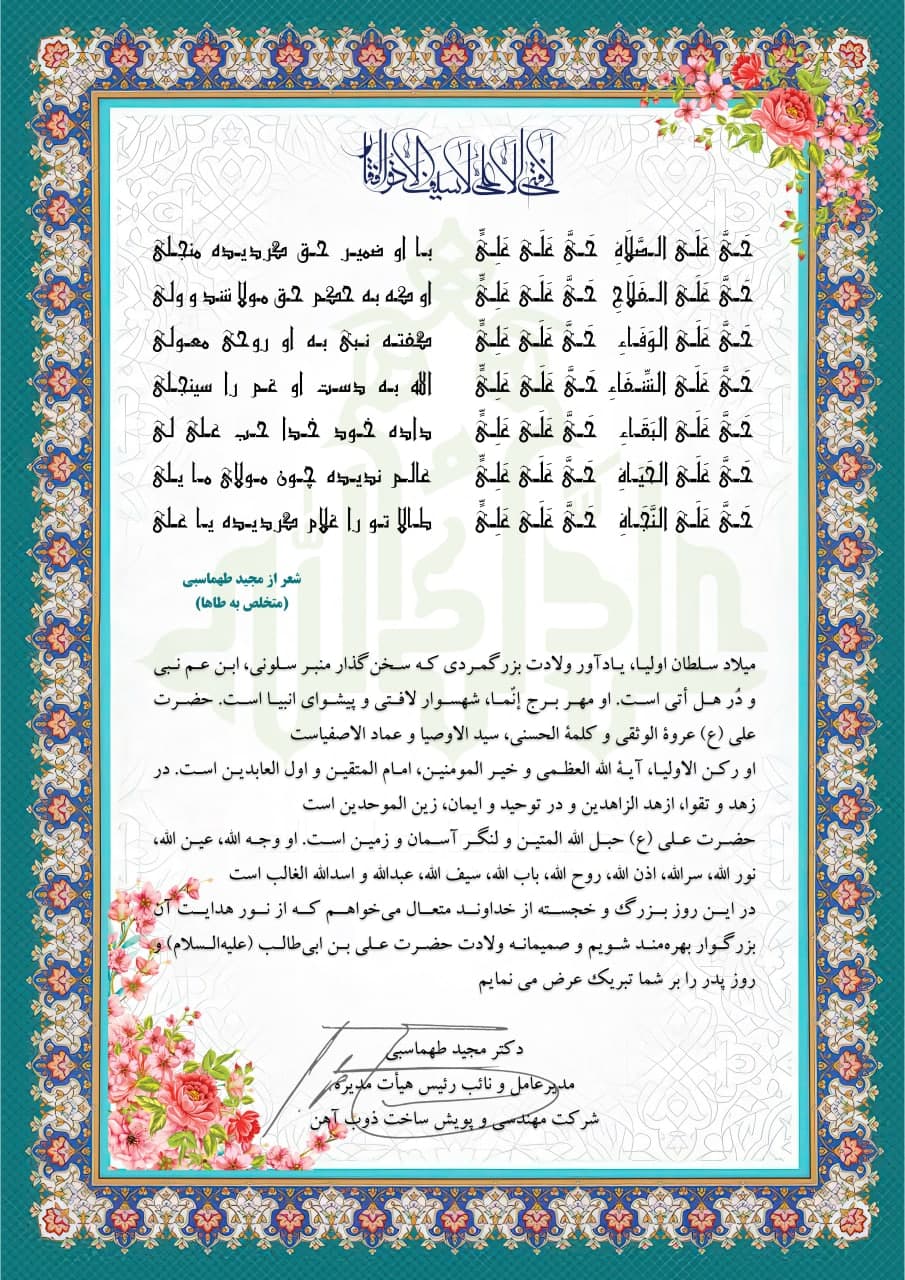 لا فتی الا علی لا سیف الا ذوالفقار
حَیَّ عَلَی الصَّلَاهِ حَیَّ عَلَی عَلِیٍّ با او ضمیر حق گردیده منجلی
حَیَّ عَلَی الفَلَاحِ حَیَّ عَلَی عَلِیٍّ او که به حکم حق مولا شد و ولی
حَیَّ عَلَی الوَفَاءِ حَیَّ عَلَی عَلِیٍّ گفته نبی به او روحی معولی
حَیَّ عَلَی الشِّفَاءِ حَیَّ عَلَی عَلِیٍّ الاه به دست او غم را سینجلی
حَیَّ عَلَی البَقَاءِ حَیَّ عَلَی عَلِیٍّ داده خود خدا حب علی لی
حَیَّ عَلَی الحَیَاهِ حَیَّ عَلَی عَلِیٍّ عالم ندیده چون مولای ما یلی
حَیَّ عَلَی النَّجَاهِ حَیَّ عَلَی عَلِیٍّ طاها تو را غلام گردیده یا علی
شعر از مجید طهماسبی
(متخلص به طاها)
میلاد سلطان اولیا، یادآور ولادت بزرگمردی که سخن‌گذار منبر سلونی، ابن عم نبی
و دُر هل أتی است. او مهر برج إنّما، شهسوار لافتی و پیشوای انبیا است. حضرت
علی (ع) عروة الوثقی و کلمة الحسنی، سید الاوصیا و عماد الاصفیاست
او رکن الاولیا، آیة الله العظمی و خیر المومنین، امام المتقین و اول العابدین است. در
زهد و تقوا، ازهد الزاهدین و در توحید و ایمان، زین الموحدین است
حضرت علی (ع) حبل الله المتین و لنگر آسمان و زمین است. او وجه الله، عین الله،
نور الله، سرالله، اذن الله، روح الله، باب الله، سیف الله، عبدالله و اسدالله الغالب است
در این روز بزرگ و خجسته از خداوند متعال می‌خواهم که از نور هدایت آن
بزرگوار بهره‌مند شویم و صمیمانه ولادت حضرت علی بن ابی‌طالب (علیه‌السلام) و
روز پدر را بر شما تبریک عرض می نمایم
دکتر مجید طهماسبی
مدیرعامل و نائب رئیس هیأت مدیره
شرکت مهندسی و پویش ساخت ذوب آهن